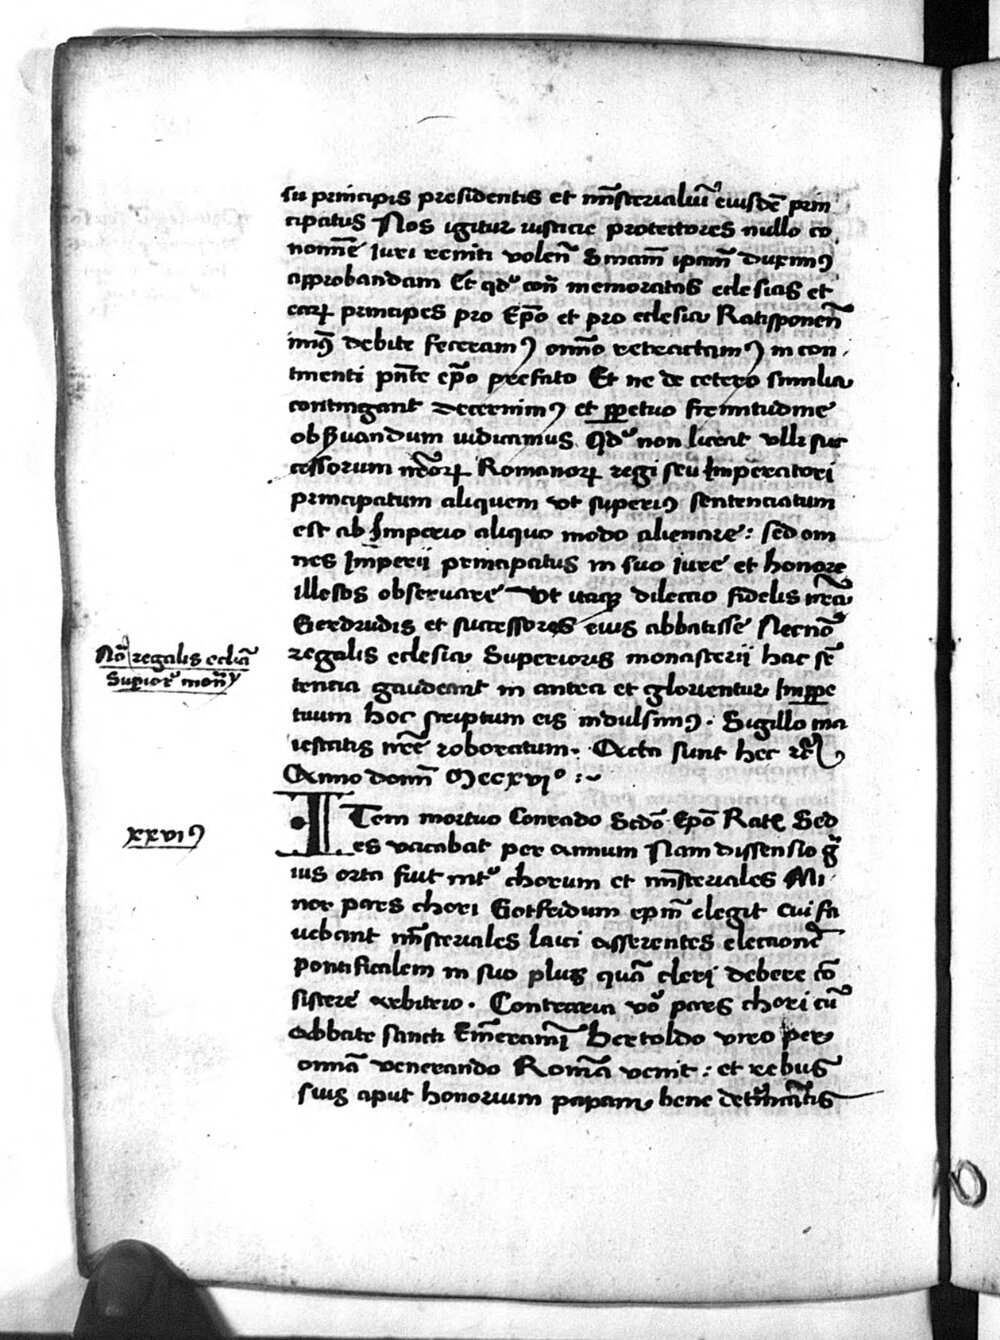 su principis presidentis et mīsterialiū eiusdē prin
cipatus Nos igitur iusticie protectores nullo co
nomīe Iuri reniti volen̄ Snīam̄ ipam̄ duximꝰ
approbandam Et qdͦ con̄ memoratas eclesias et
earꝝ principes pro Ep̄o et pro eclesia Ratisponen̄
inīꝰ debite feceramꝰ om̄no retractamꝰ in con
tinenti pn̄te ep̄o prefato Et ne de cetero similia
contingant decernimꝰ et ꝑpetuo firmitudine
obẜuandum iudicamus Qdͦ non liceat vlli suc
cessorum nr̄orꝝ Romanorꝝ regi seu Imperatori
principatum aliquem vt superiꝰ sentenciatum
est ab Imperio aliquo modo alienare : sed om
nes Imperii principatus in suo iure et honore
illesos obseruare vt itaqꝫ dilecta fidelis nr̄a
Gerdrudis et successores eius abbatisse Necnō
regalis eclesia Superioris monasterii hac sē
tentia gaudeant in antea et glorientur Imꝑpe
tuum hoc scriptum eis indulsimꝰ . Sigillo ma
iestatis nr̄e roboratum . Acta sunt hec
Anno domī Mccxviͦ :~
Nō regalis eclīa
Superioꝝ mon̄
Item mortuo Conrado Scdō Ep̄o Rat Sed
es vacabat per annum Nam dissensio g̃
uis orta fuit intͣ chorum et mīsteriales Mi
nor pars chori Gotfridum epm̄ elegit cui fa
uebant mīsteriales laici asserentes electionē
pontificalem in suo plus quā cleri debere cō
sistere arbitrio . Contraria vͦo pars chori cū
abbate sancti Em̄erami Bertoldo viro per
omīa venerando Romā venit : et rebus
suis aput honorium papam bene detīminatis
xxviꝰ